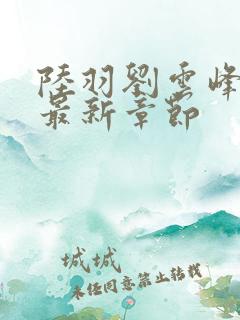 陸羽劉雲峰
最新章節
城城
未经同意禁止转载